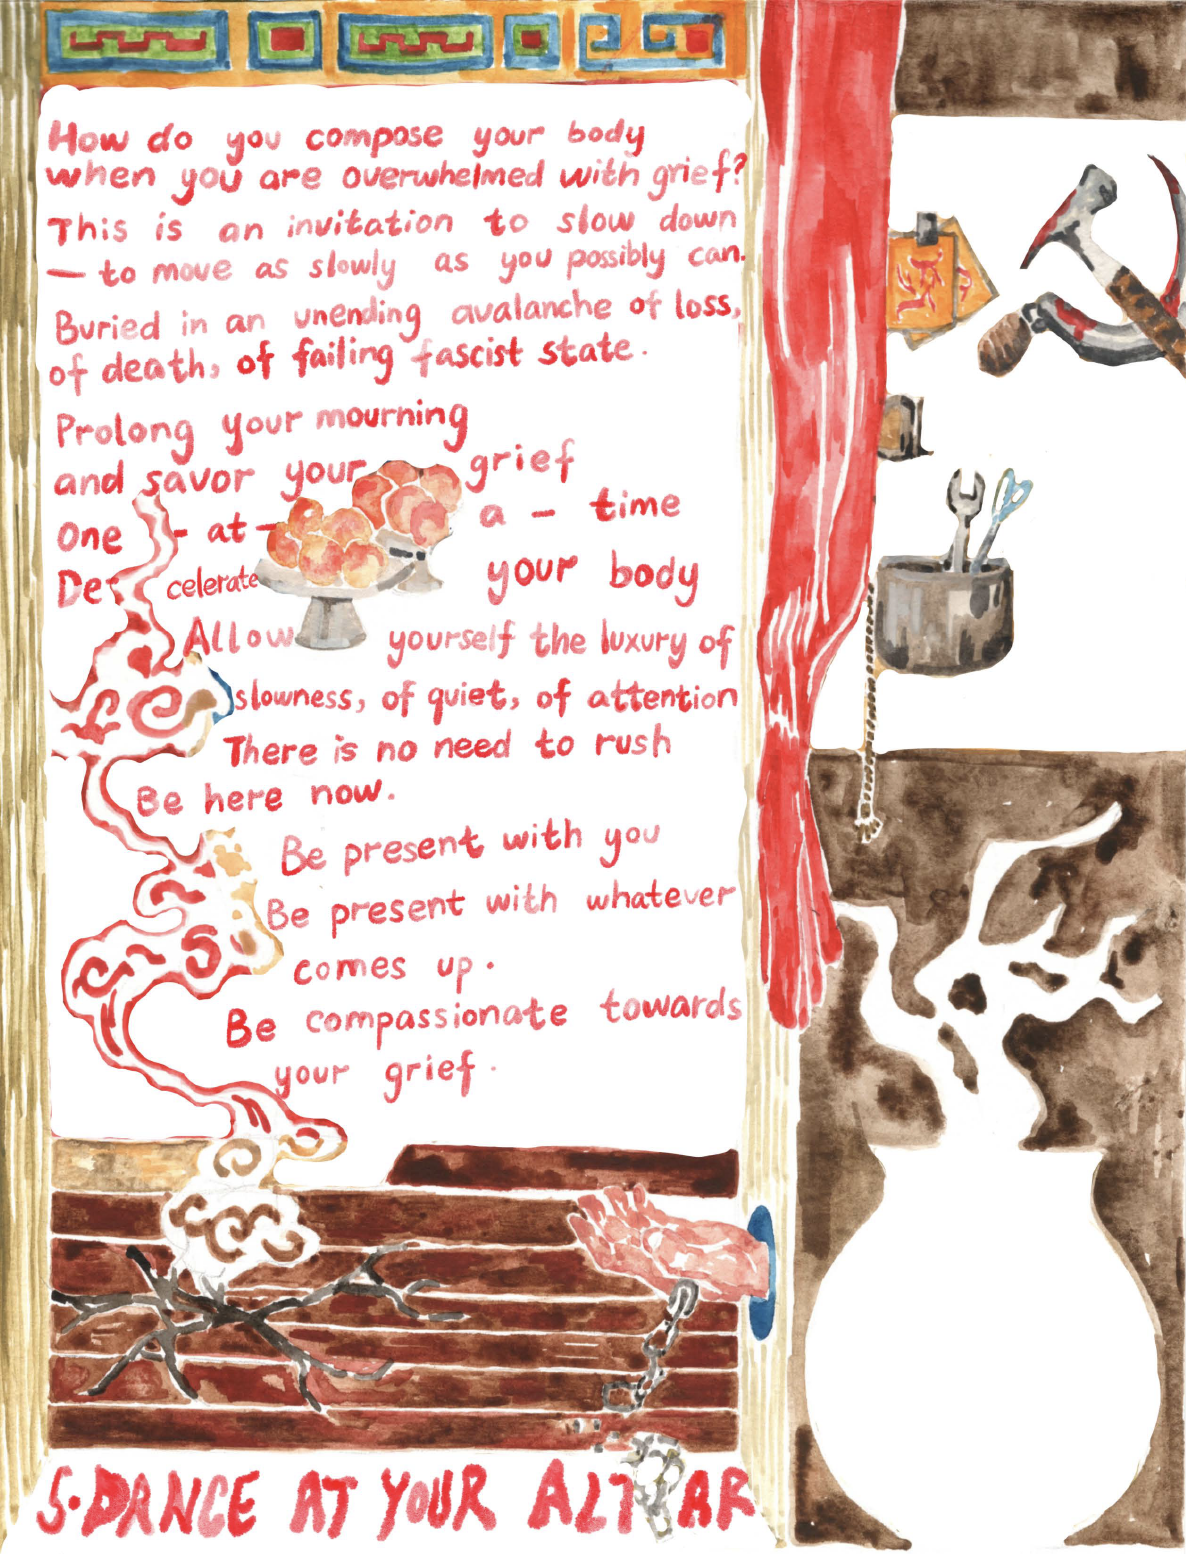 How do you compose your body
when you are overwhelmed with grief?
This is an invitation to slow down
— to move as slowly as you possibly can.
Buried in an unending avalanche of loss,
of death, of failing fascist state.
Prolong your mourning
and savor your grief
One - at - a - time
Decelerate your body
Allow yourself the luxury of
slowness, of quiet, of attention
There is no need to rush
Be here now.
Be present with you
Be present with whatever
comes up.
Be compassionate towards
your grief.
5. DANCE AT YOUR ALTAR